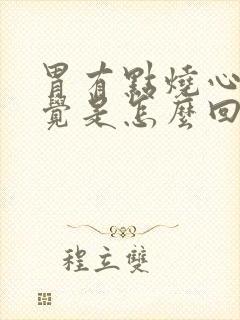 胃有點燒心
覺是怎麼回
程立雙